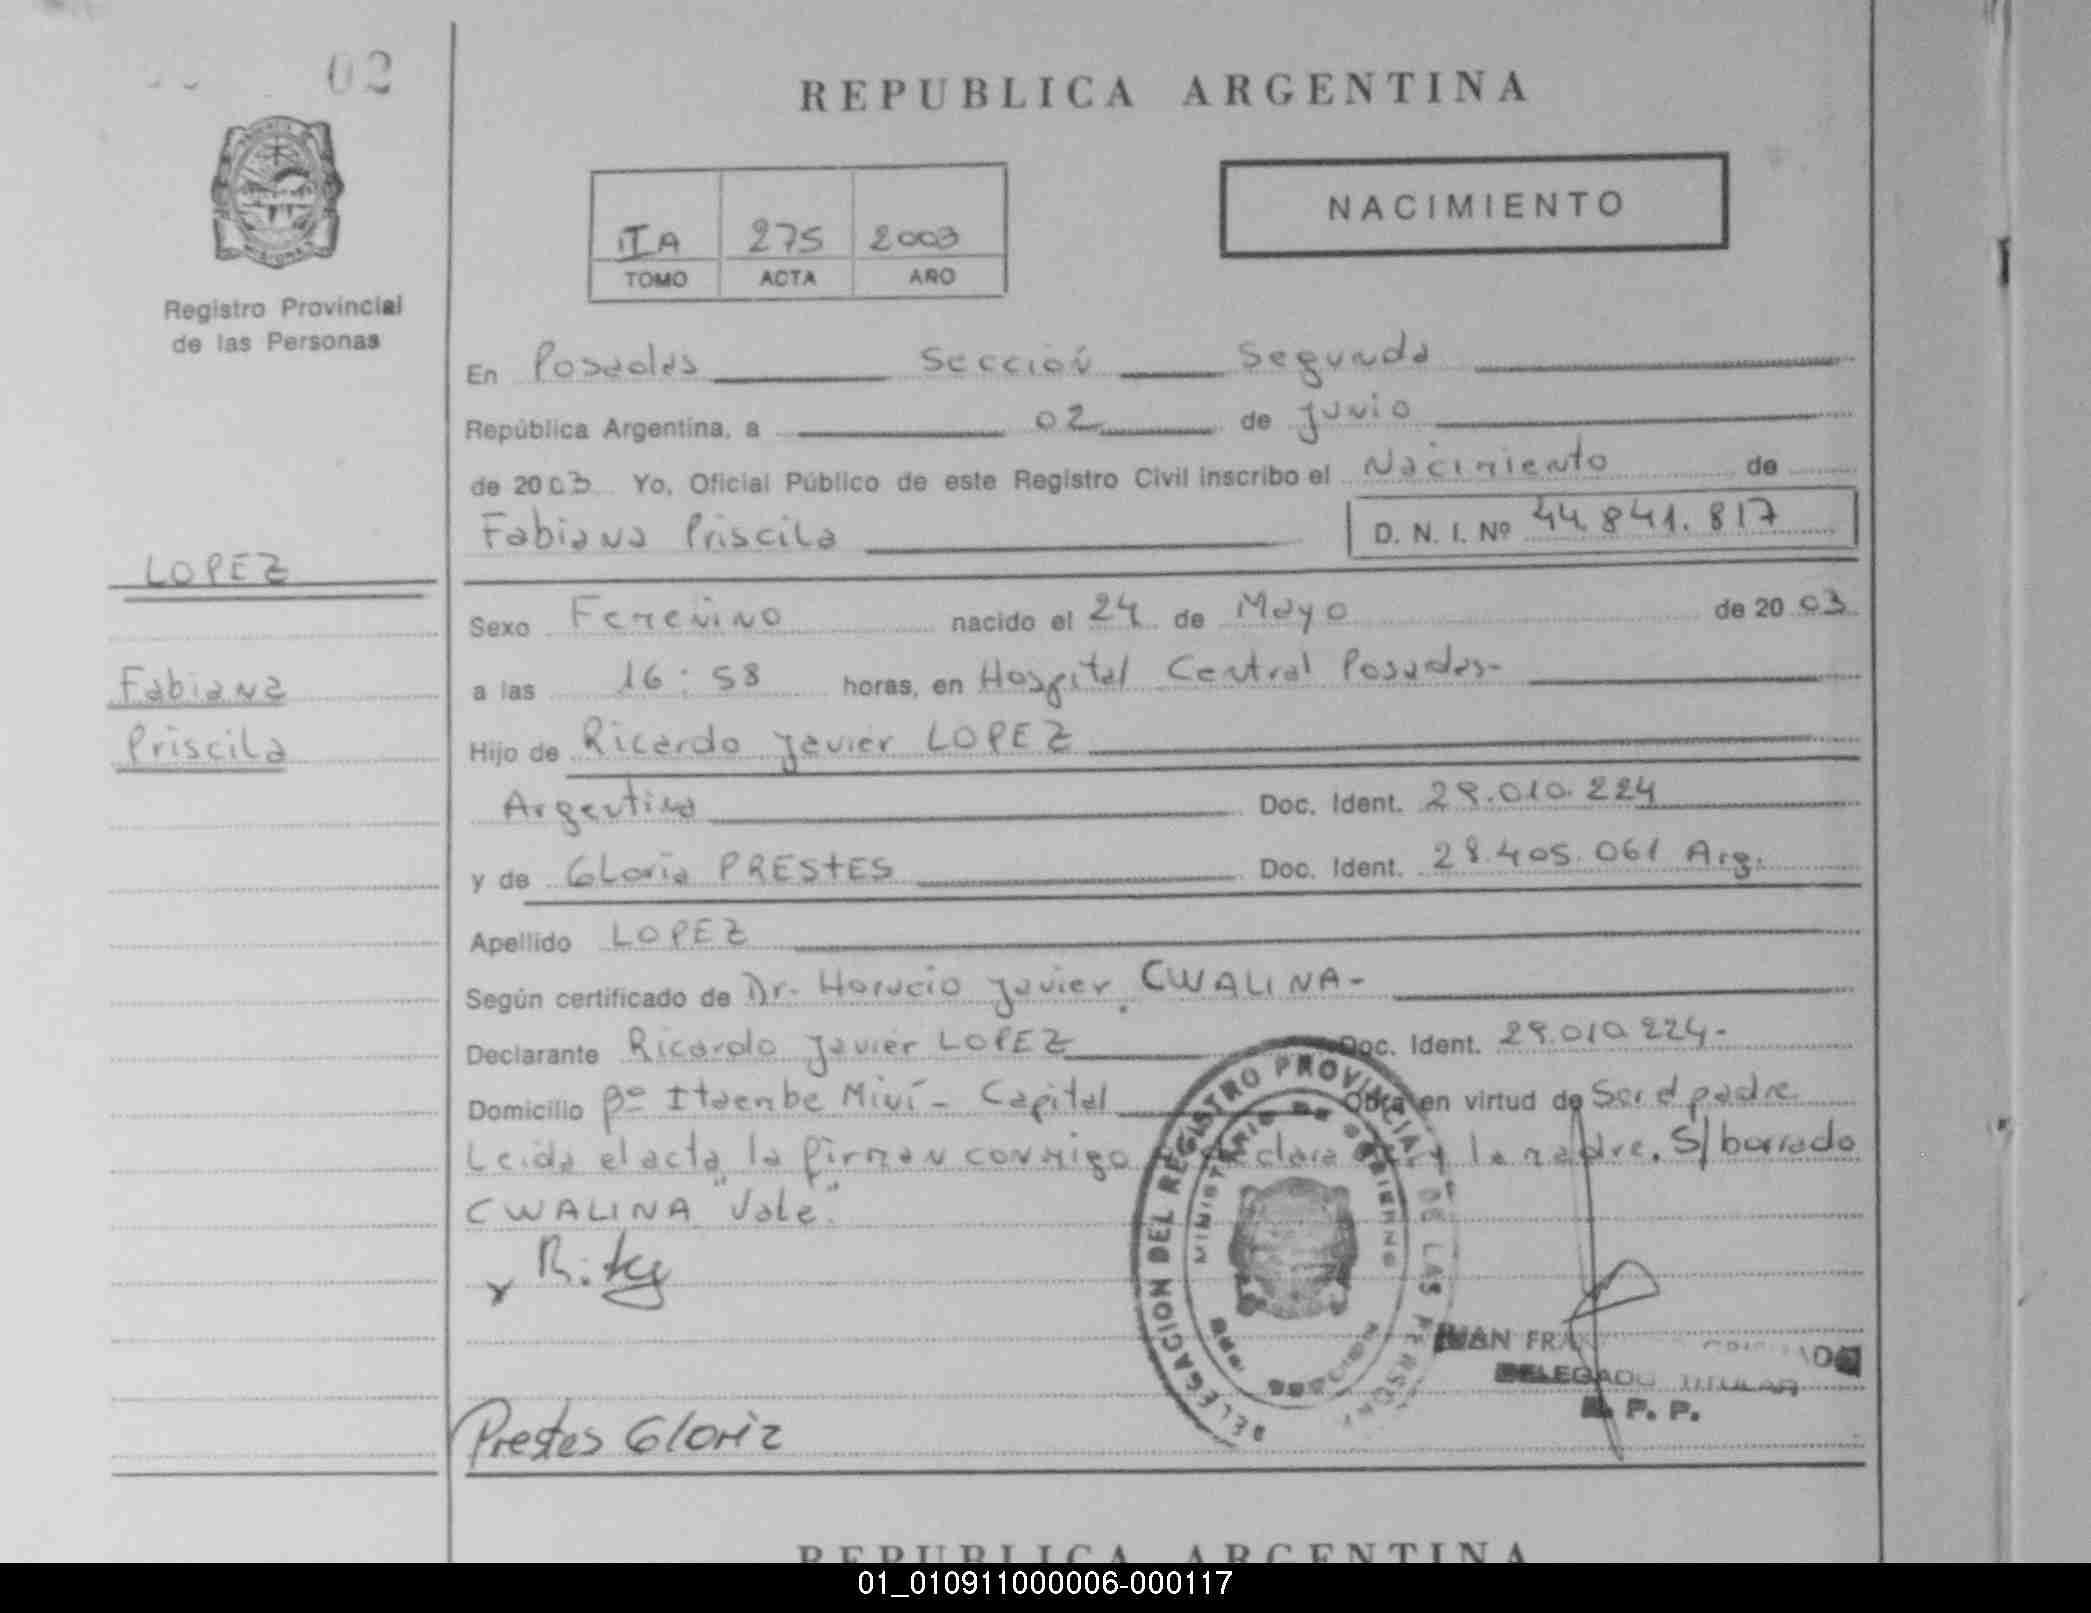 02
REPUBLICA ARGENTINA
NACIMIENTO
IIA 275 2003
TOMO ACTA AÑO
Registro Provincial
de las Personas
En Posadas Sección Segunda
República Argentina, a 02 de Junio
de 2003 Yo, Oficial Público de este Registro Civil inscribo el Nacimiento de
Fabiana Priscila D. N. I. Nº 44.841.817
LOPEZ
Fabiana
Priscila
Sexo Femenino nacido el 24 de Mayo de 20 03
a las 16:58 horas, en Hospital Central Posadas-
Hijo de Ricardo Javier LOPEZ
Argentina Doc. Ident. 29.010.224
y de Gloria PRESTES Doc. Ident. 28.405.061 Arg.
Apellido LOPEZ
Según certificado de Dr. Horacio Javier CWALINA-
Declarante Ricardo Javier LOPEZ Doc. Ident. 29.010.224-
Domicilio Bº Itaembe Miní - Capital Obra en virtud de Ser el padre
Leida el acta, la firman conmigo declara y la madre. S/ borrado
CWALINA "Vale".
DELEGACION DEL REGISTRO PROVINCIAL DE LAS PERSONAS
MINISTERIO DE GOBIERNO
MISIONES
Prestes Gloria
JUAN FRA
DELEGADO TITULAR
R. P. P.
REPUBLICA ARGENTINA
01_010911000006-000117